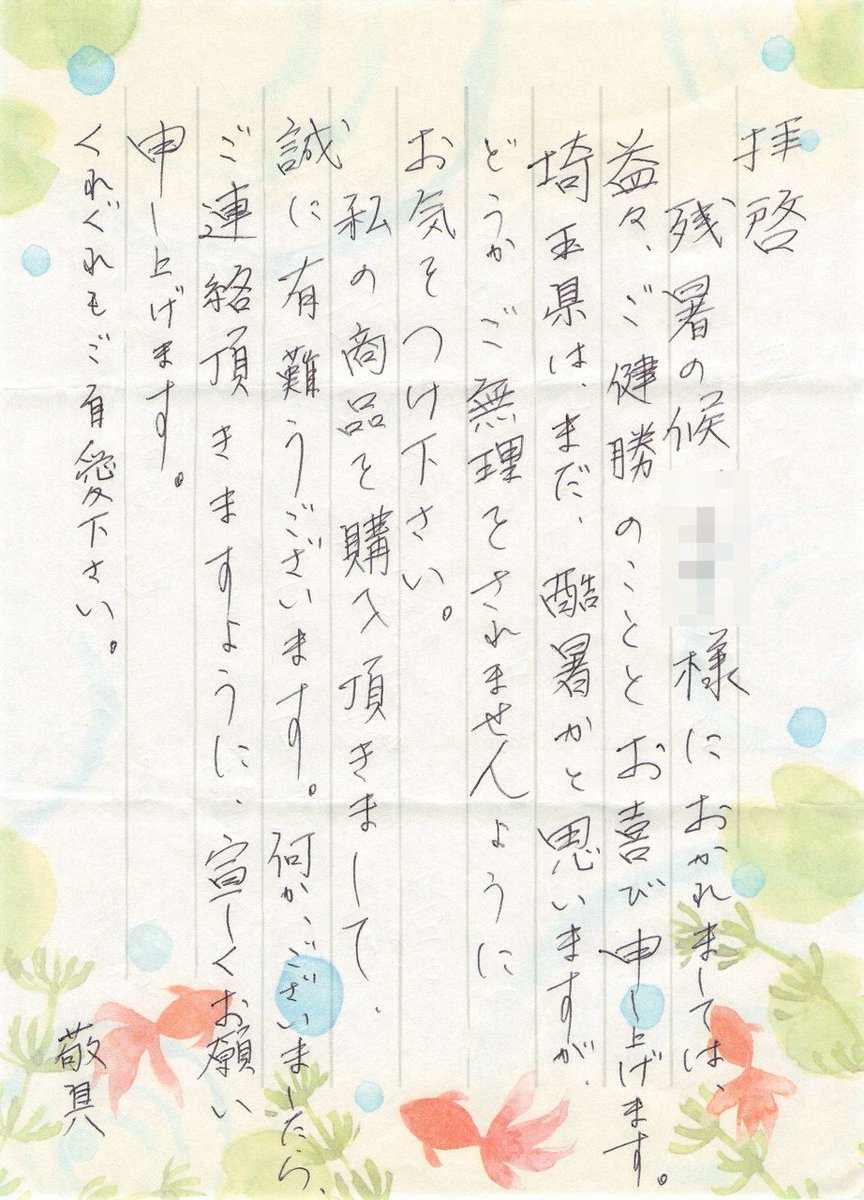 拝啓
残暑の候、様におかれましては、
益々、ご健勝のこととお喜び申し上げます。
埼玉県は、まだ、酷暑かと思いますが、
どうかご無理をされませんように
お気をつけ下さい。
私の商品を購入頂きまして、
誠に有難うございます。何か、ございましたら、
ご連絡頂きますように、宜しくお願い
申し上げます。
くれぐれもご自愛下さい。
敬具